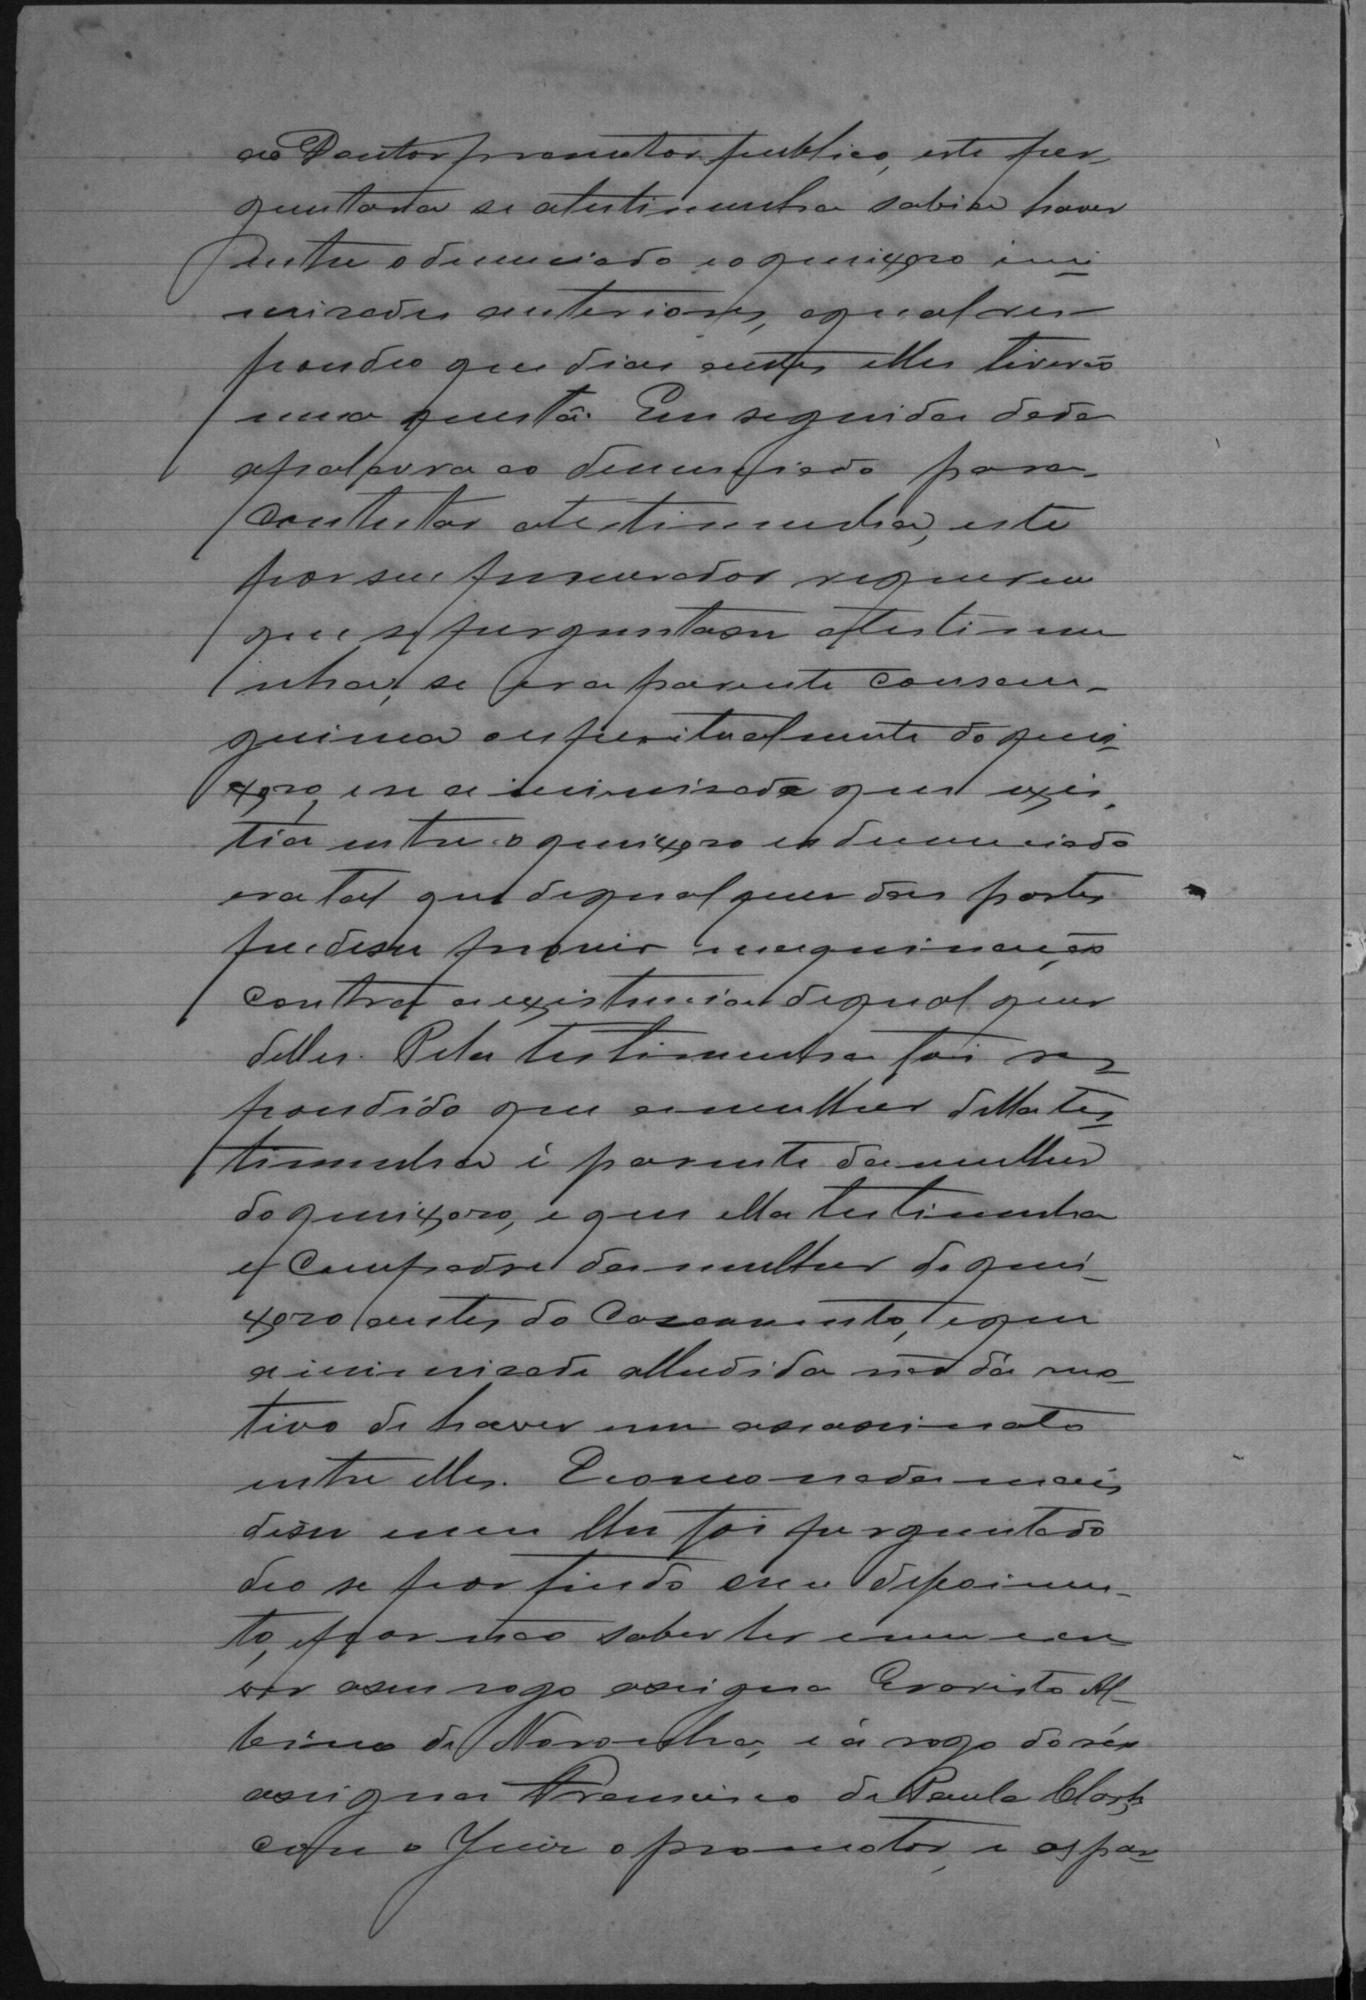 ao Doutor promotor publico, este per-
guntada se atestimunha sabia haver
entre o denunciado eo queixoso ini
mizades anteriores, aqual res-
pondeo que dias antes elles tiverão
uma questã. Em seguida dada
apalavra ao denunciado para
contestar atestimunha, este
por seu procurador requereu
que se perguntasse atestimu
nha, se era parente consan-
guineo ou espiritualmente do quei
xoso, e se a inimizade que exis-
tia entre o queixoso eo denunciado
era tal que de qual quer das partes
pudesse provir maquinação
contra a existencia de qual quer
delles. Pela testimunha foi res-
pondido que a mulher della tes
timunha é parente da mulher
do queixoso, e que ella testimunha
é Compadre da mulher do quei-
xoso antes do Casamento, e que
a inimizade alludida não dá mo-
tivo de haver um assassinato
entre elles. E como nada mais
disse nem lhe foi perguntado
deo se por findo este depoimen-
to, e por não saber ler e nem escre
ver a seu rogo assigna Evaristo Al-
bino de Noronha, e á rogo do réo
assigna Francisco de Paula
com o Juiz o promotor, e as par